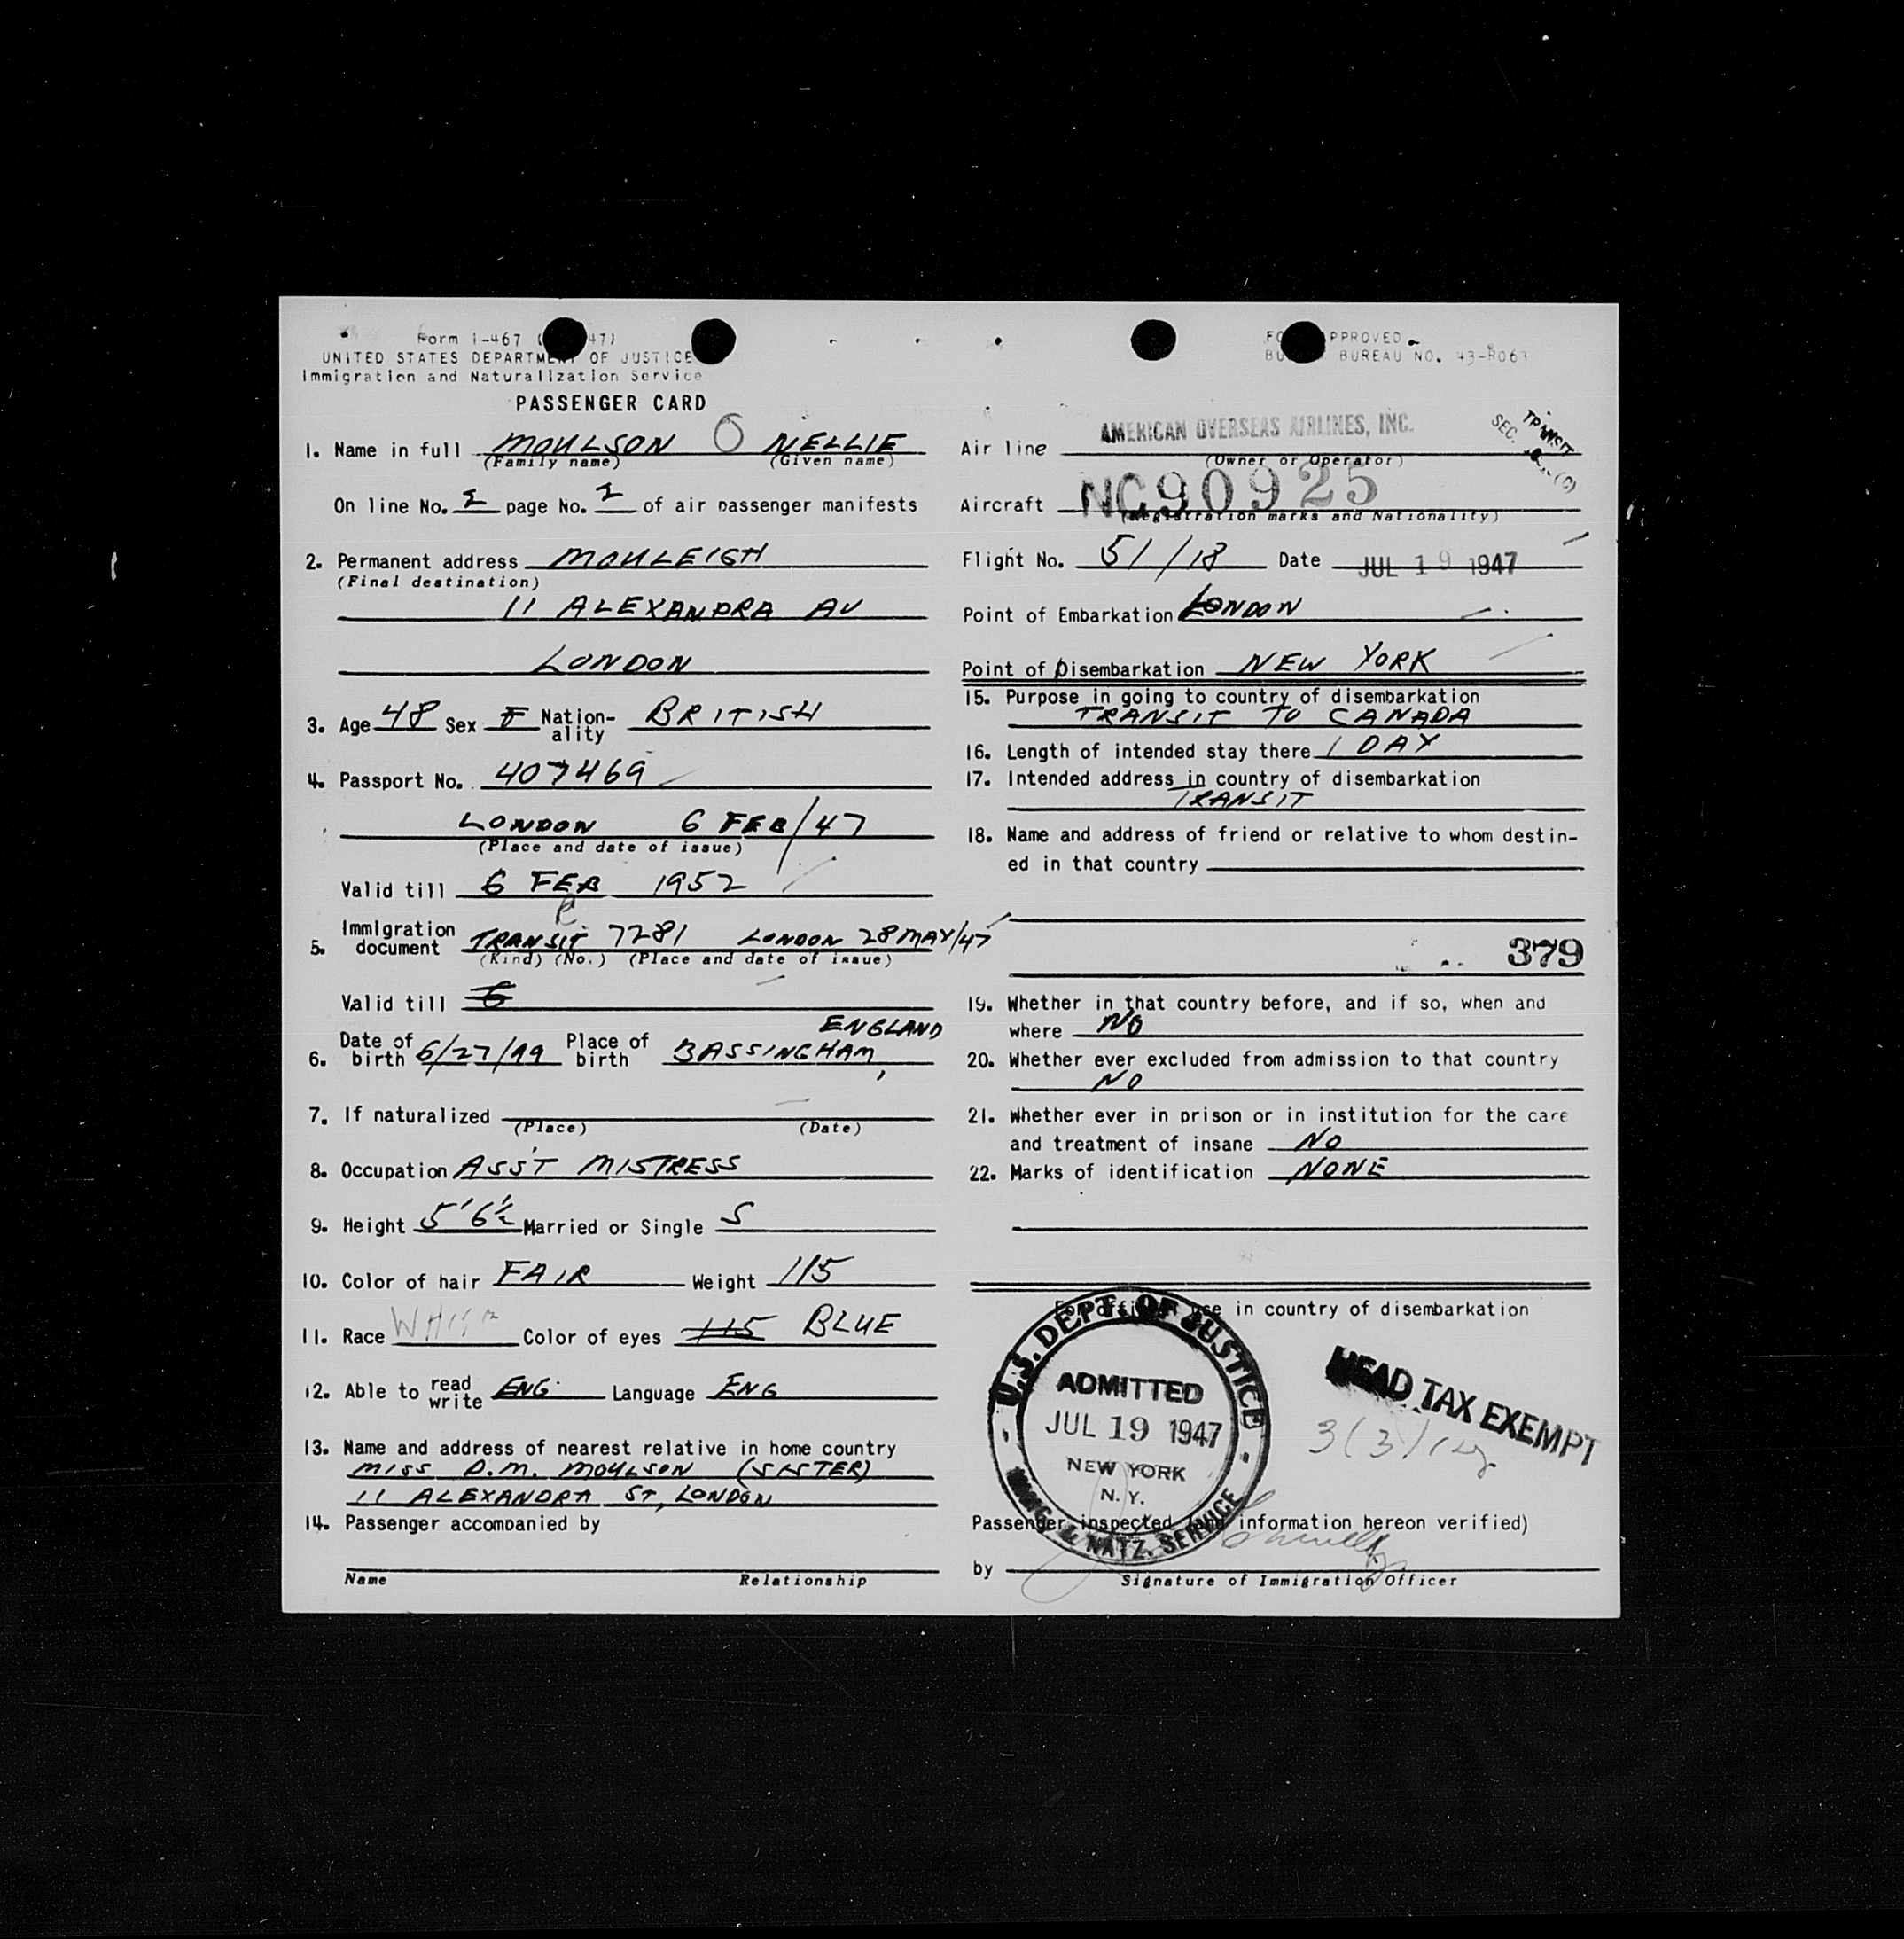 Form I-467 ( 47)
UNITED STATES DEPARTMENT OF JUSTICE
Immigration and Naturalization Service
PASSENGER CARD
1. Name in full MOULSON O NELLIE
(Family name) (Given name)
On line No. 2 page No. 2 of air passenger manifests
2. Permanent address MOULEIGH
(Final destination)
11 ALEXANDRA AV
LONDON
3. Age 48 Sex F Nation-ality BRITISH
4. Passport No. 407469
LONDON 6 FEB/47
(Place and date of issue)
Valid till 6 FEB 1952
5. Immigration document TRANSIT 7281 LONDON 28 MAY/47
(Kind) (No.) (Place and date of issue)
Valid till 6
ENGLAND
6. Date of birth 6/27/99 Place of birth BASSINGHAM,
7. If naturalized
(Place) (Date)
8. Occupation ASS'T MISTRESS
9. Height 5'6½ Married or Single S
10. Color of hair FAIR Weight 115
11. Race WHITE Color of eyes 115 BLUE
12. Able to read write ENG. Language ENG
13. Name and address of nearest relative in home country
MISS D.M. MOULSON (SISTER)
11 ALEXANDRA ST, LONDON
14. Passenger accompanied by
Name Relationship
FO PPROVED
BU BUREAU NO. 43-R063
TRANSIT
SEC.
Air line AMERICAN OVERSEAS AIRLINES, INC.
(Owner or Operator)
Aircraft NC90925
(Registration marks and Nationality)
Flight No. 51/18 Date JUL 19 1947
Point of Embarkation LONDON
Point of Disembarkation NEW YORK
15. Purpose in going to country of disembarkation
TRANSIT TO CANADA
16. Length of intended stay there 1 DAY
17. Intended address in country of disembarkation
TRANSIT
18. Name and address of friend or relative to whom destin-
ed in that country
379
19. Whether in that country before, and if so, when and
where NO
20. Whether ever excluded from admission to that country
NO
21. Whether ever in prison or in institution for the care
and treatment of insane NO
22. Marks of identification NONE
For official use in country of disembarkation
U.S. DEPT. OF JUSTICE
ADMITTED
JUL 19 1947
NEW YORK
N.Y.
IMMIG. & NATZ. SERVICE
HEAD TAX EXEMPT
Passenger inspected (and information hereon verified)
by
Signature of Immigration Officer